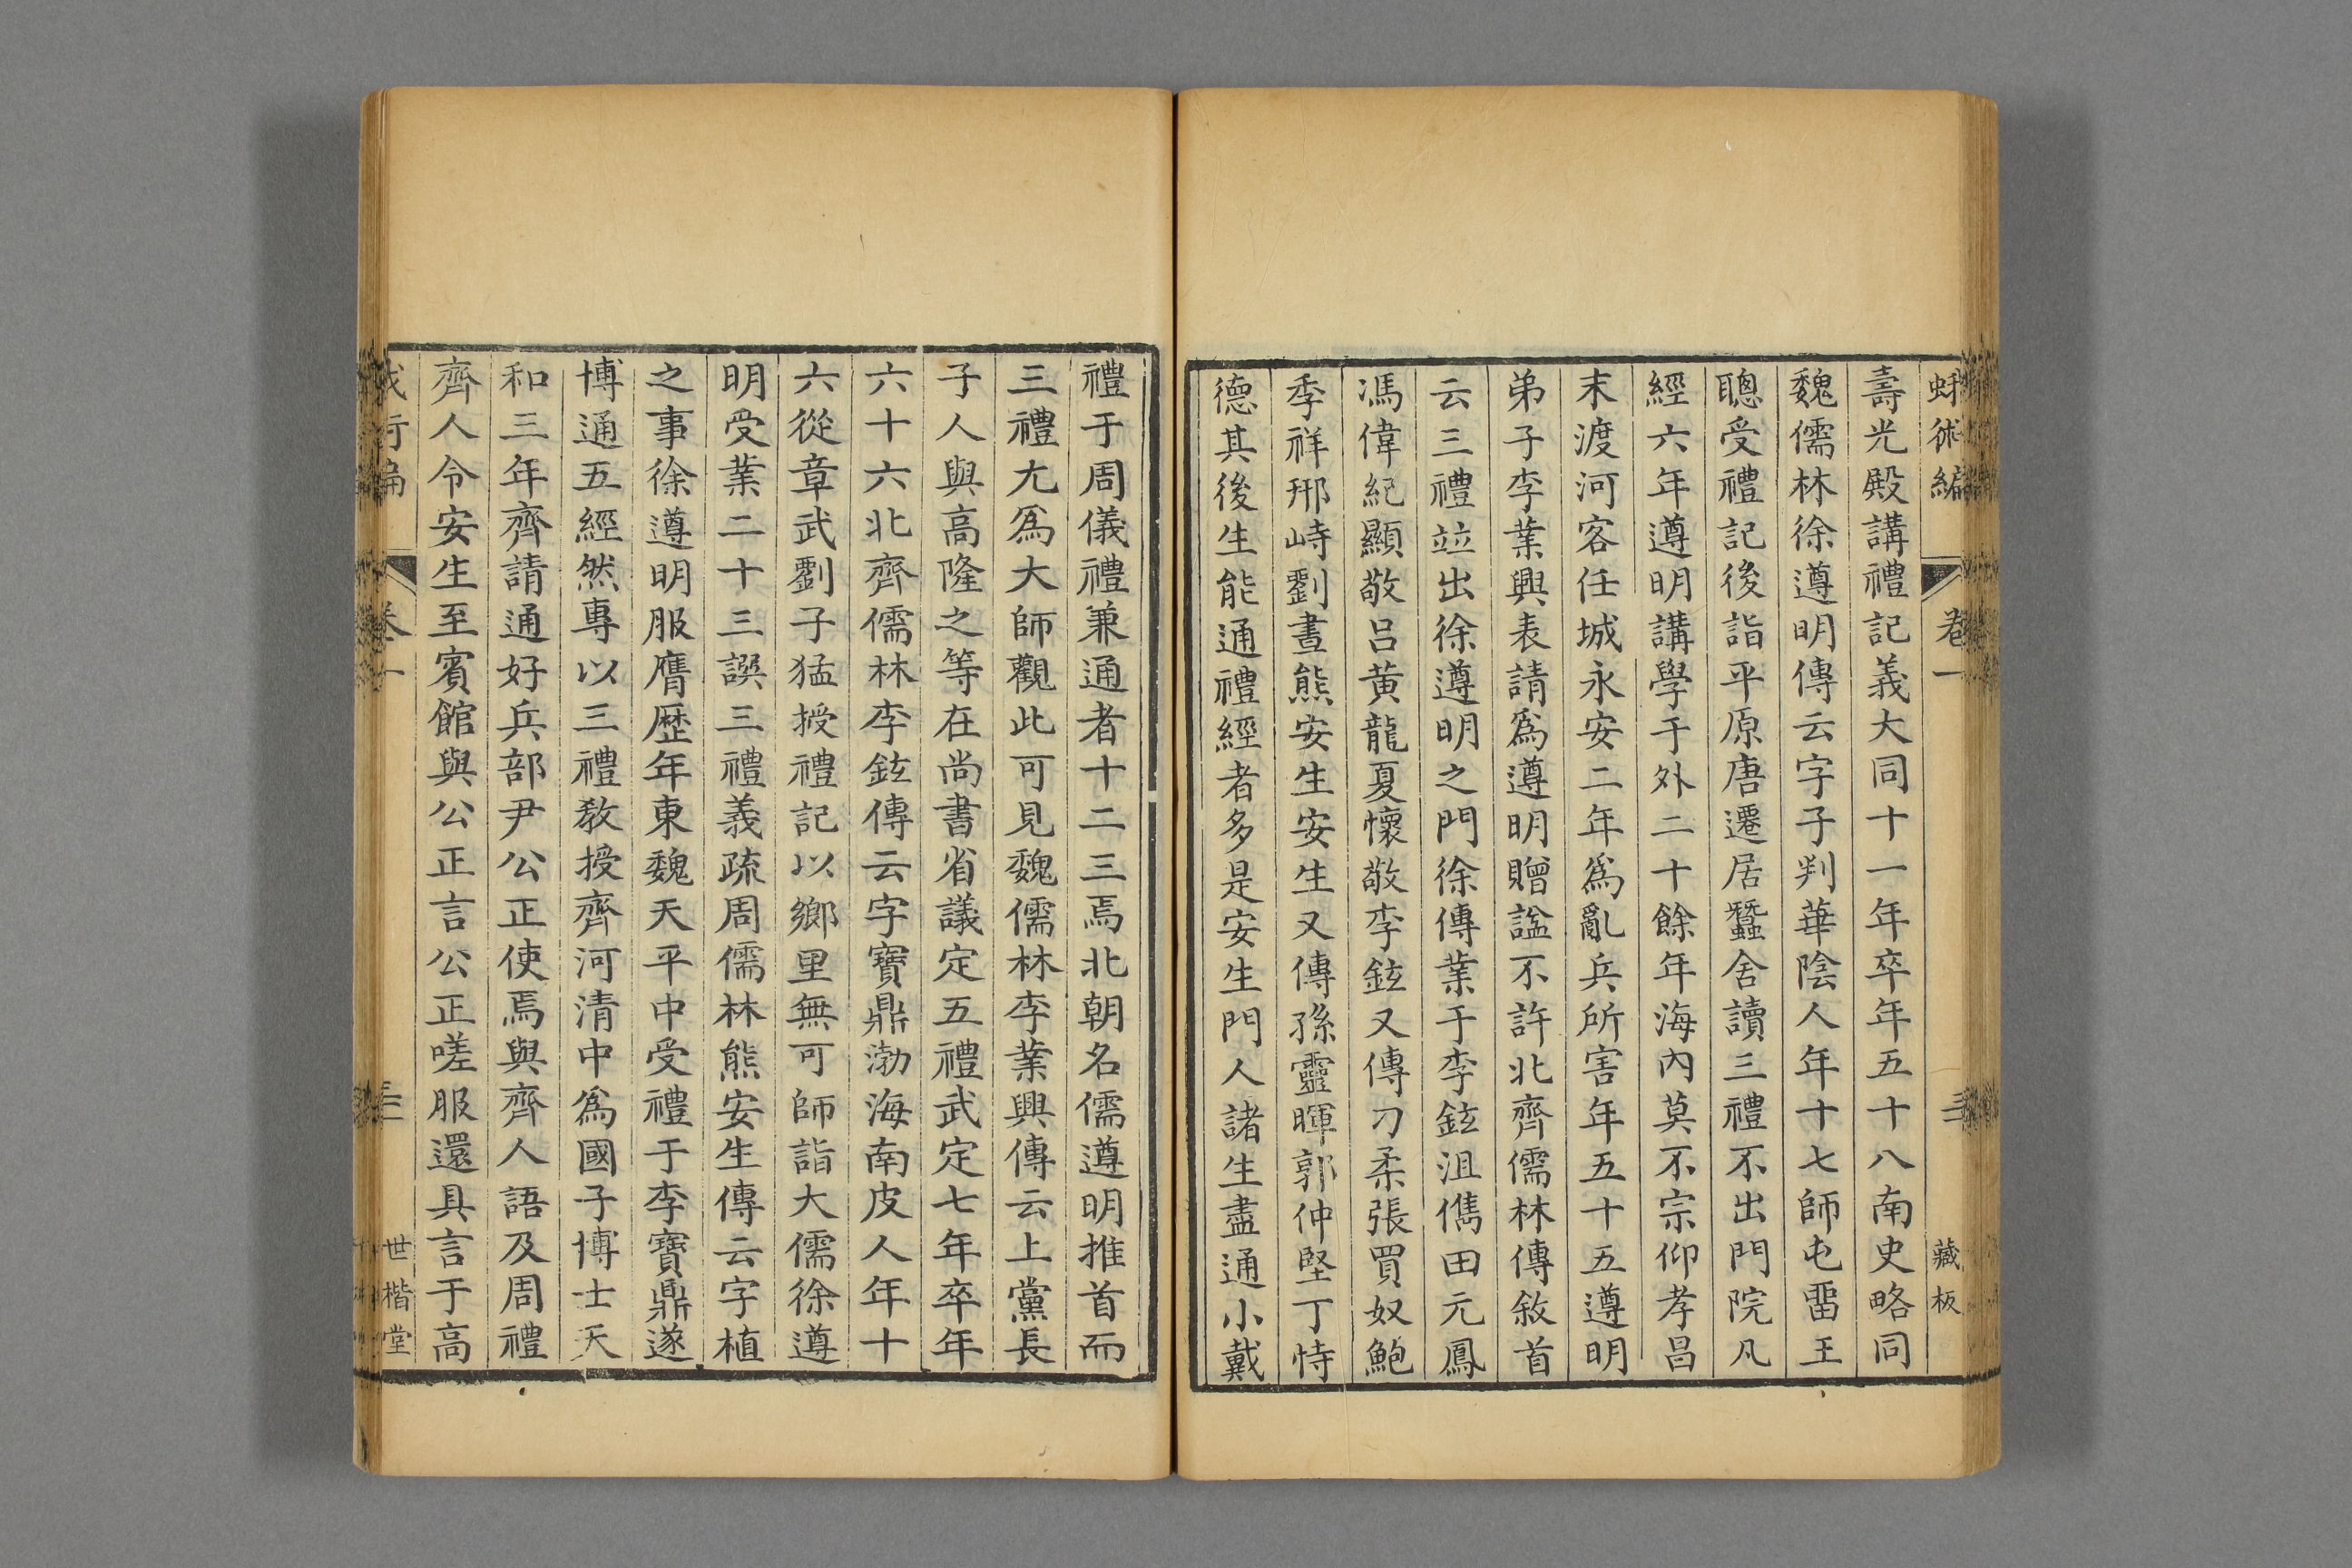 蛾術編 卷一 三 藏板
壽光殿講禮記義大同十一年卒年五十八南史略同
魏儒林徐遵明傳云字子判華陰人年十七師屯畱王
聰受禮記後詣平原唐遷居蠶舍讀三禮不出門院凡
經六年遵明講學于外二十餘年海內莫不宗仰孝昌
末渡河客任城永安二年爲亂兵所害年五十五遵明
弟子李業興表請爲遵明贈諡不許北齊儒林傳敘首
云三禮竝出徐遵明之門徐傳業于李鉉沮儁田元鳳
馮偉紀顯敬呂黃龍夏懷敬李鉉又傳刁柔張買奴鮑
季祥邢峙劉晝熊安生安生又傳孫靈暉郭仲堅丁恃
德其後生能通禮經者多是安生門人諸生盡通小戴
禮于周儀禮兼通者十二三焉北朝名儒遵明推首而
三禮尢爲大師觀此可見魏儒林李業興傳云上黨長
子人與高隆之等在尚書省議定五禮武定七年卒年
六十六北齊儒林李鉉傳云字寶鼎渤海南皮人年十
六從章武劉子猛授禮記以鄉里無可師詣大儒徐遵
明受業二十三譔三禮義疏周儒林熊安生傳云字植
之事徐遵明服膺歷年東魏天平中受禮于李寶鼎遂
博通五經然專以三禮敎授齊河清中爲國子博士天
和三年齊請通好兵部尹公正使焉與齊人語及周禮
齊人令安生至賓館與公正言公正嗟服還具言于高
卷一 三 世楷堂